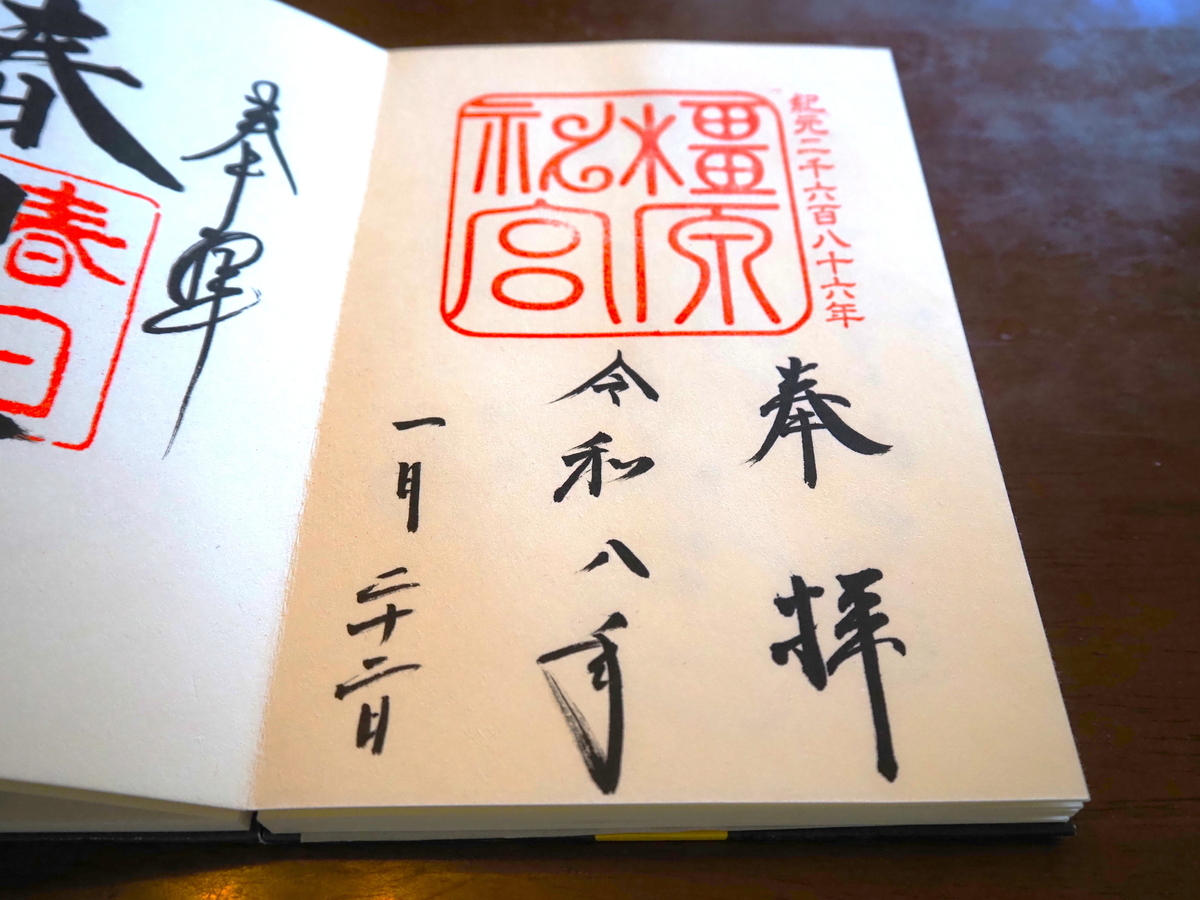 紀元二千六百八十六年
橿原
神宮
奉拝
令和八年
一月二十二日
奉拝
春
春日